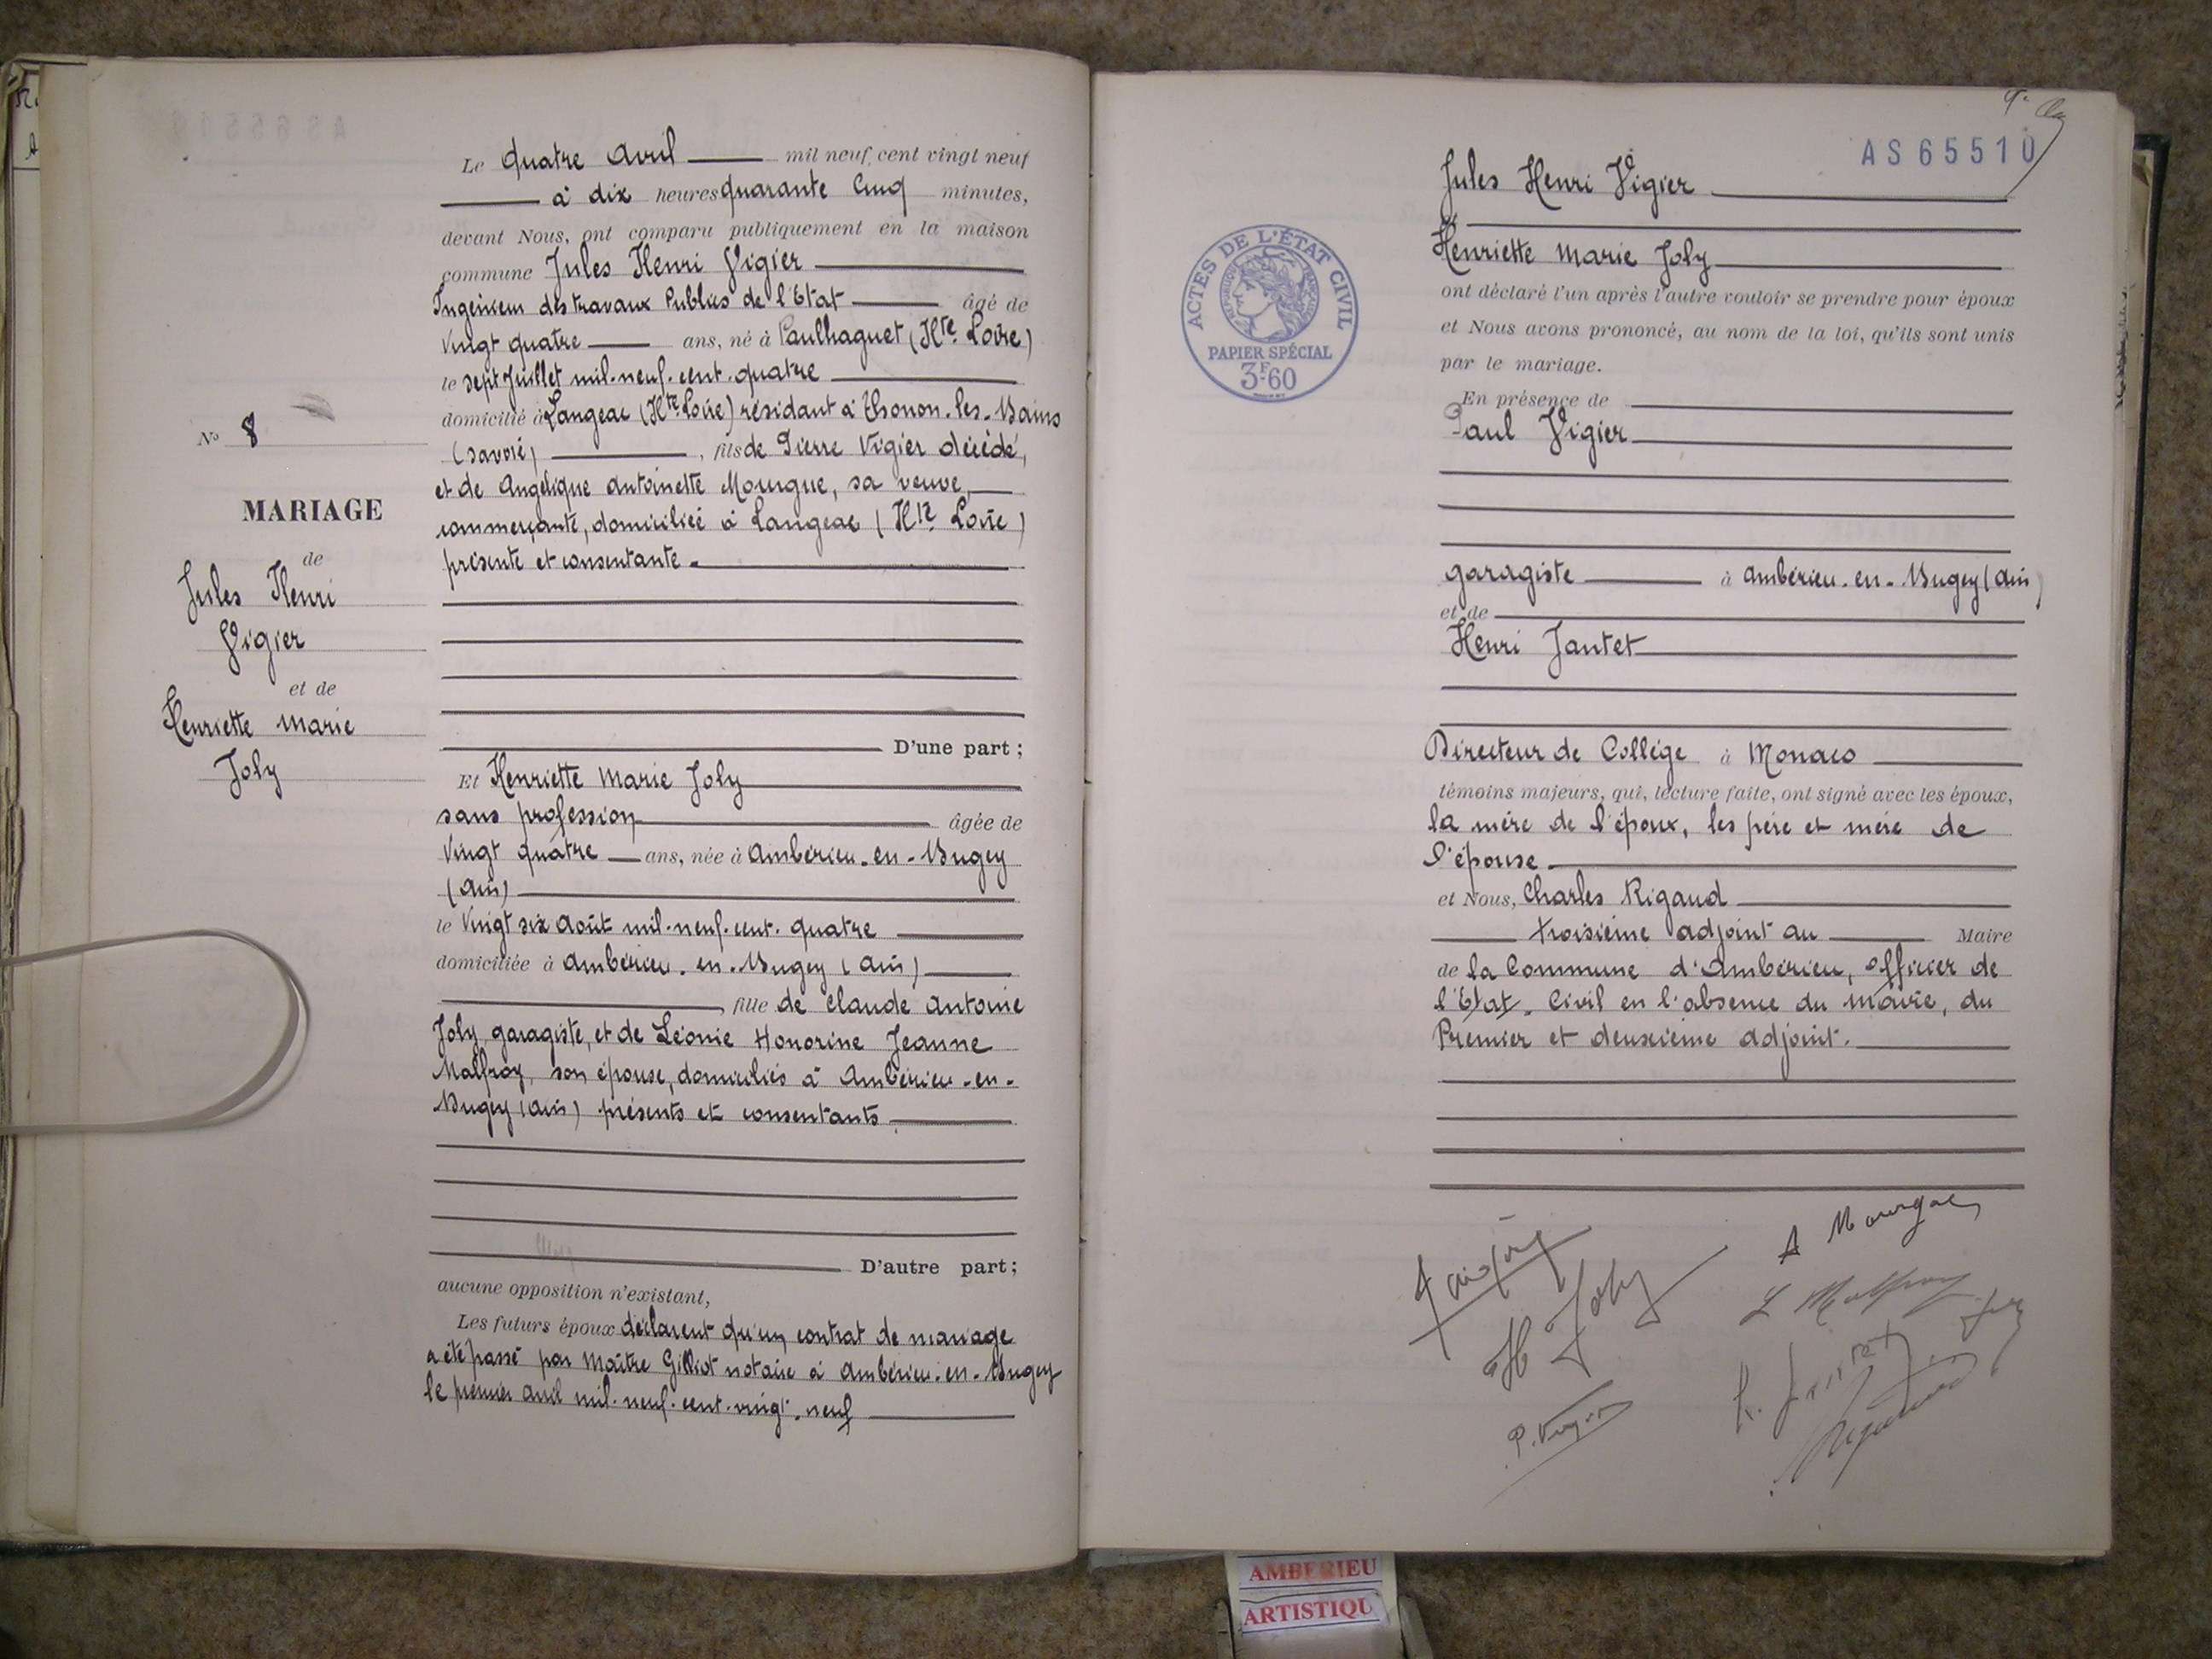 N° 8
MARIAGE
de
Jules Henri
Vigier
et de
Henriette Marie
Joly
Le quatre Avril mil neuf cent vingt neuf
à dix heures quarante cinq minutes,
devant Nous, ont comparu publiquement en la maison
commune Jules Henri Vigier
Ingénieur des travaux Publics de l'Etat âgé de
Vingt quatre ans, né à Paulhaguet (Hte Loire)
le sept Juillet mil-neuf-cent-quatre
domicilié à Langeac (Hte Loire) résidant à Thonon-les-Bains
(Savoie), fils de Pierre Vigier décédé,
et de Angélique Antoinette Mourgue, sa veuve,
commerçante, domiciliée à Langeac (Hte Loire)
présente et consentante.
D'une part ;
Et Henriette Marie Joly
sans profession âgée de
Vingt quatre ans, née à Ambérieu-en-Bugey
(Ain)
le Vingt six Août mil-neuf-cent-quatre
domiciliée à Ambérieu-en-Bugey (Ain)
, fille de Claude Antoine
Joly, garagiste, et de Léonie Honorine Jeanne
Malfroy, son épouse, domiciliés à Ambérieu-en-
Bugey (Ain) présents et consentants
D'autre part ;
aucune opposition n'existant,
Les futurs époux déclarent qu'un contrat de mariage
a été passé par Maître Gilliot notaire à Ambérieu-en-Bugey
le premier avril mil-neuf-cent-vingt-neuf
AS65510
Jules Henri Vigier
et
Henriette Marie Joly
ont déclaré l'un après l'autre vouloir se prendre pour époux
et Nous avons prononcé, au nom de la loi, qu'ils sont unis
par le mariage.
En présence de
Paul Vigier
garagiste à Ambérieu-en-Bugey (Ain)
et de
Henri Jantet
Directeur de Collège à Monaco
témoins majeurs, qui, lecture faite, ont signé avec les époux,
la mère de l'époux, les père et mère de
l'épouse
et Nous, Charles Rigaud
troisième adjoint au Maire
de la Commune d'Ambérieu, officier de
l'Etat-Civil en l'absence du Maire, du
Premier et deuxième adjoint.
ACTES DE L'ÉTAT CIVIL
PAPIER SPÉCIAL
3F60
A Mourgue
H Joly
L Malfroy
P. Vigier
AMBERIEU
ARTISTIQU